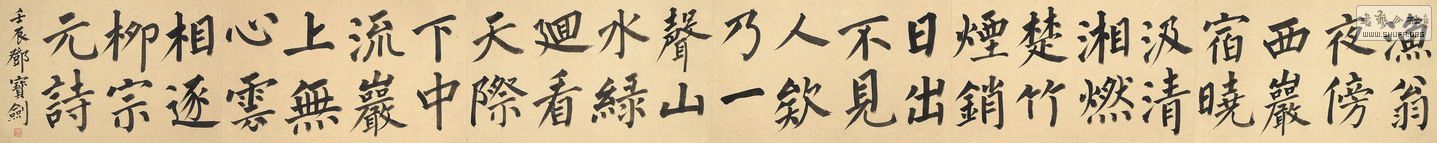 漁翁
夜傍
西巖
宿曉
汲清
湘燃
楚竹
煙銷
日出
不見
人欸
乃一
聲山
水綠
廻看
天際
下中
流巖
上無
心雲
相逐
柳宗
元詩
壬辰鄧寶劍
WWW.SHUFA.ORG